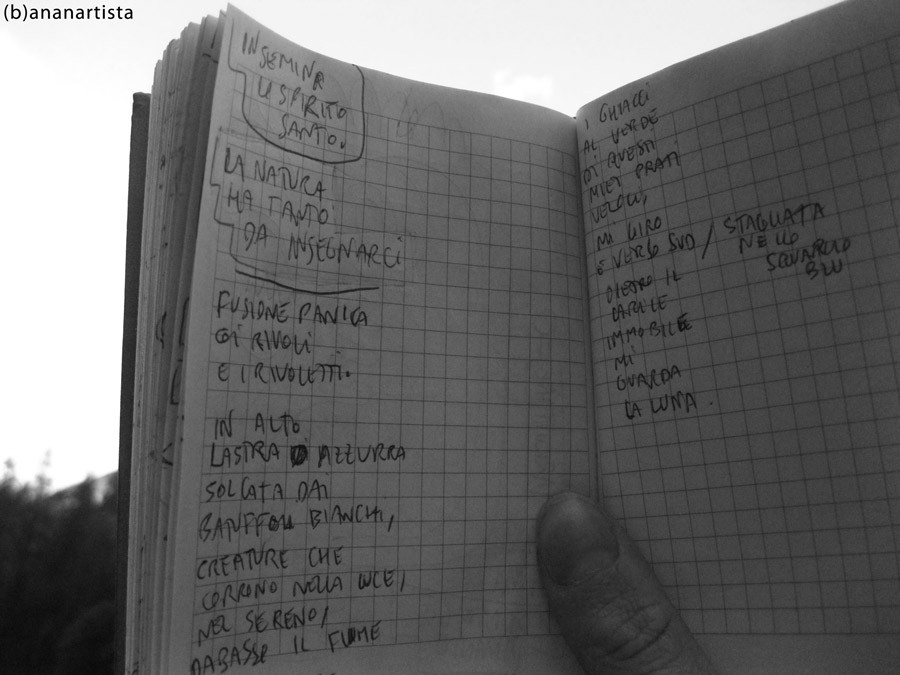 (b)ananartista
INSEMINA
LO SPIRITO
SANTO.
LA NATURA
HA TANTO
DA INSEGNARCI
FUSIONE PANICA
DI RIVOLI
E I RIVOLETTI.
IN ALTO
LASTRA AZZURRA
SOLCATA DAI
BATUFFOLI BIANCHI,
CREATURE CHE
CORRONO NELLA LUCE,
NEL SERENO,
DABASSO IL FIUME
I GHIACCI
AL VERDE
DI QUESTI
MIEI PRATI
VELOCI,
MI GIRO
E VERSO SUD / STAGLIATA
NELLO
SQUARCIO
BLU
DIETRO IL
LARICE
IMMOBILE
MI
GUARDA
LA LUNA.